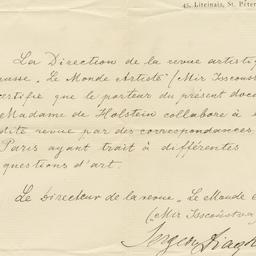 45, Liteinaia, St. Péter
La Direction de la revue artistiq
usse „Le Monde Artiste" (Mir Isscouss
certifie que le porteur du présent docu
Madame de Holstein collabore à
dite revue par des correspondances
Paris ayant trait à différentes
questions d'art.
Le Directeur de la revue „Le Monde
(Mir Isscoustva)
Serge Diagh